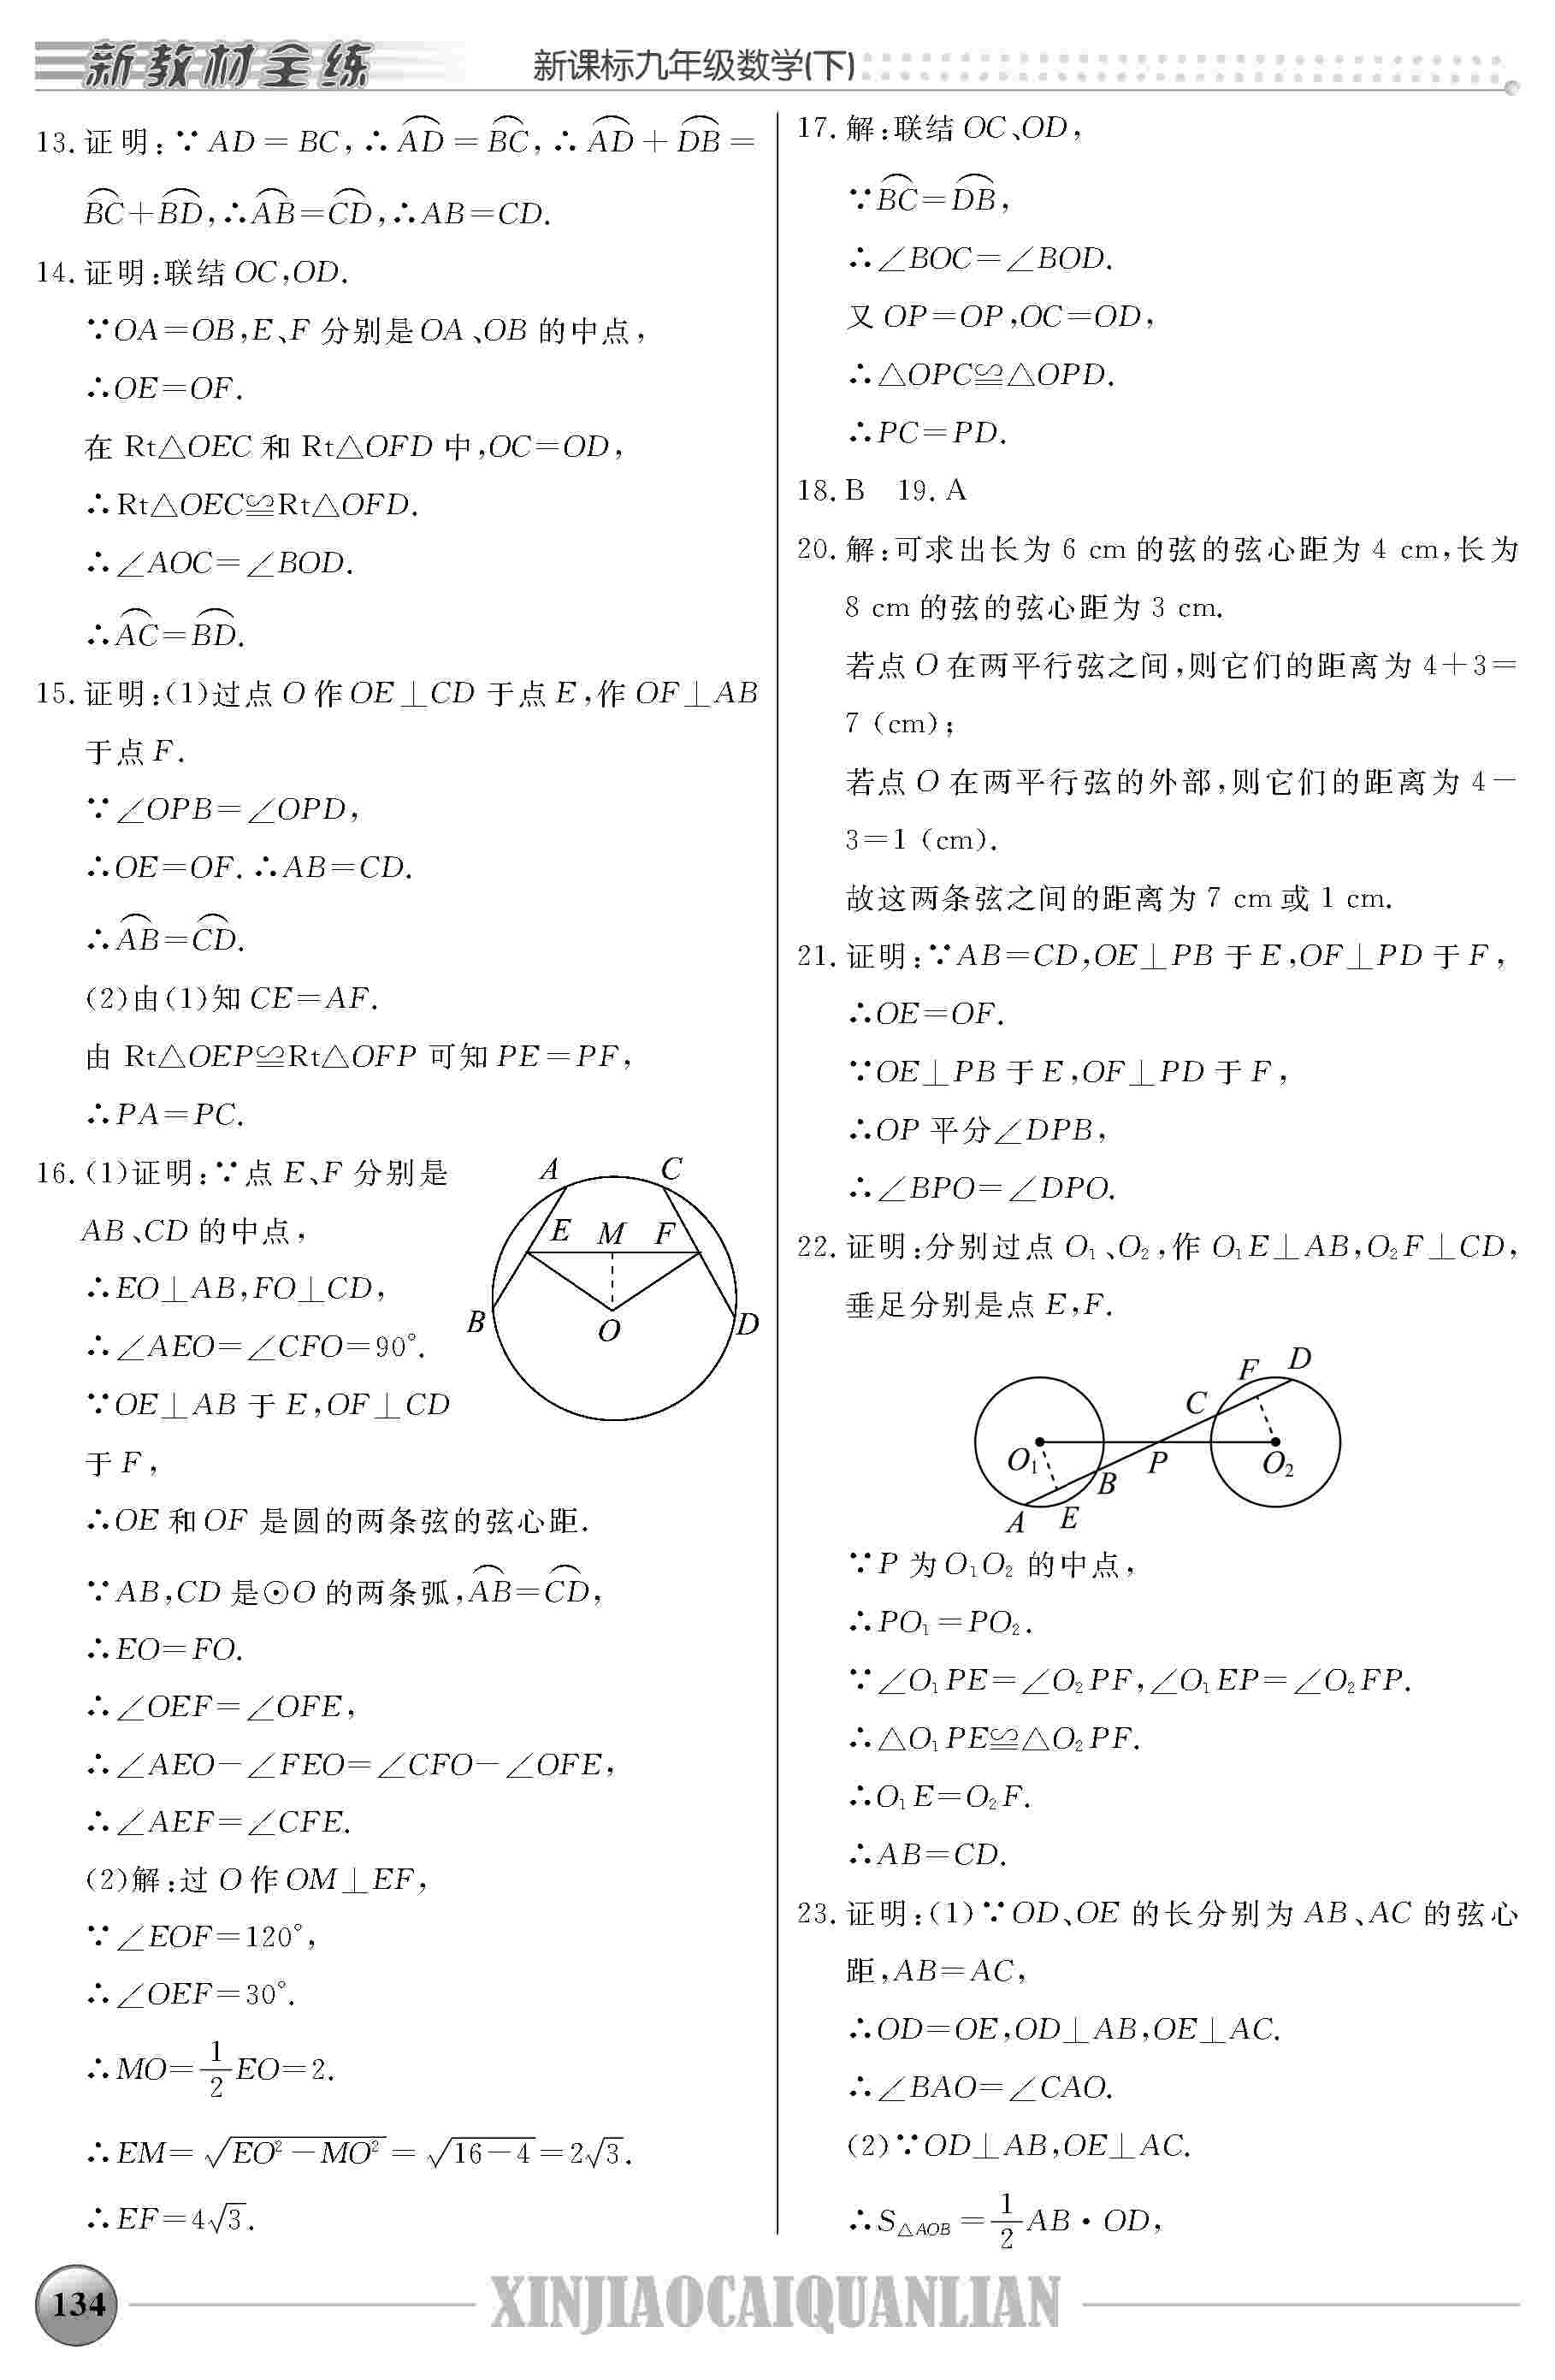 新教材全练
新课标九年级数学(下)
13. 证明:∵AD=BC,∴A͡D=B͡C,∴A͡D+D͡B=
B͡C+B͡D,∴A͡B=C͡D,∴AB=CD.
14. 证明:联结OC,OD.
∵OA=OB,E、F分别是OA、OB的中点,
∴OE=OF.
在Rt△OEC和Rt△OFD中,OC=OD,
∴Rt△OEC≌Rt△OFD.
∴∠AOC=∠BOD.
∴A͡C=B͡D.
15. 证明:(1)过点O作OE⊥CD于点E,作OF⊥AB
于点F.
∵∠OPB=∠OPD,
∴OE=OF.∴AB=CD.
∴A͡B=C͡D.
(2)由(1)知CE=AF.
由Rt△OEP≌Rt△OFP可知PE=PF,
∴PA=PC.
16. (1)证明:∵点E、F分别是
AB、CD的中点,
∴EO⊥AB,FO⊥CD,
∴∠AEO=∠CFO=90°.
∵OE⊥AB于E,OF⊥CD
于F,
A C
E M F
B O D
∴OE和OF是圆的两条弦的弦心距.
∵AB,CD是⊙O的两条弧,A͡B=C͡D,
∴EO=FO.
∴∠OEF=∠OFE,
∴∠AEO-∠FEO=∠CFO-∠OFE,
∴∠AEF=∠CFE.
(2)解:过O作OM⊥EF,
∵∠EOF=120°,
∴∠OEF=30°.
∴MO=1/2EO=2.
∴EM=√(EO²-MO²)=√(16-4)=2√3.
∴EF=4√3.
17. 解:联结OC、OD,
∵B͡C=D͡B,
∴∠BOC=∠BOD.
又OP=OP,OC=OD,
∴△OPC≌△OPD.
∴PC=PD.
18. B 19. A
20. 解:可求出长为6 cm的弦的弦心距为4 cm,长为
8 cm的弦的弦心距为3 cm.
若点O在两平行弦之间,则它们的距离为4+3=
7 (cm);
若点O在两平行弦的外部,则它们的距离为4-
3=1 (cm).
故这两条弦之间的距离为7 cm或1 cm.
21. 证明:∵AB=CD,OE⊥PB于E,OF⊥PD于F,
∴OE=OF.
∵OE⊥PB于E,OF⊥PD于F,
∴OP平分∠DPB,
∴∠BPO=∠DPO.
22. 证明:分别过点O₁、O₂,作O₁E⊥AB,O₂F⊥CD,
垂足分别是点E,F.
F D
C
O₁ B P O₂
A E
∵P为O₁O₂的中点,
∴PO₁=PO₂.
∵∠O₁PE=∠O₂PF,∠O₁EP=∠O₂FP.
∴△O₁PE≌△O₂PF.
∴O₁E=O₂F.
∴AB=CD.
23. 证明:(1)∵OD、OE的长分别为AB、AC的弦心
距,AB=AC,
∴OD=OE,OD⊥AB,OE⊥AC.
∴∠BAO=∠CAO.
(2)∵OD⊥AB,OE⊥AC.
∴S△AOB=1/2AB·OD,
134
XINJIAOCAIQUANLIAN